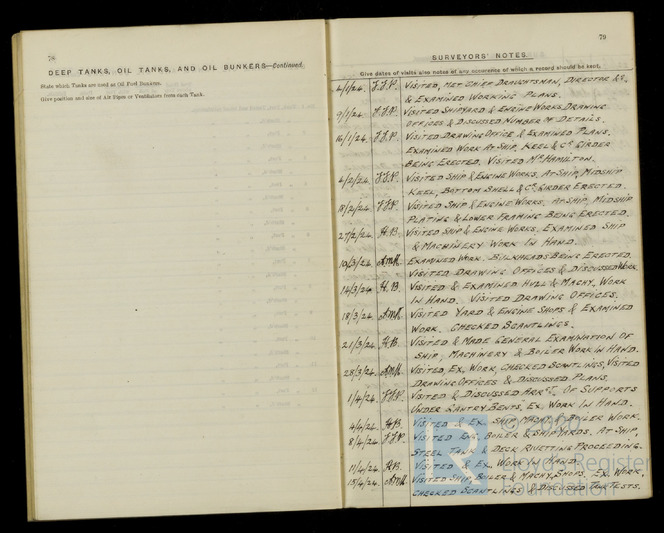 78
DEEP TANKS, OIL TANKS, AND OIL BUNKERS—Continued.
State which Tanks are used as Oil Fuel Bunkers.
Give position and size of Air Pipes or Ventilators from each Tank.
79
SURVEYORS' NOTES.
Give dates of visits also notes of any occurrence of which a record should be kept.
4/1/24. J.J.P. VISITED, MET CHIEF DRAUGHTSMAN, DIRECTOR &c.
& EXAMINED WORKING PLANS.
9/1/24. J.J.P. VISITED SHIPYARD & ENGINE WORKS DRAWING
OFFICES & DISCUSSED NUMBER OF DETAILS.
16/1/24. J.J.P. VISITED DRAWING OFFICE & EXAMINED PLANS.
EXAMINED WORK AT SHIP, KEEL & Cr GIRDER
BEING ERECTED. VISITED Mr HAMILTON.
4/2/24. J.J.P. VISITED SHIP & ENGINE WORKS, AT SHIP, MIDSHIP
KEEL, BOTTOM SHELL & Cr GIRDER ERECTED.
18/2/24. J.J.P. VISITED SHIP & ENGINE WORKS, AT SHIP, MIDSHIP
PLATING & LOWER FRAMING BEING ERECTED.
27/2/24. H.B. VISITED SHIP & ENGINE WORKS, EXAMINED SHIP
& MACHINERY WORK IN HAND.
10/3/24. EXAMINED WORK. BULKHEADS BEING ERECTED.
VISITED DRAWING OFFICES & DISCUSSED WORK.
14/3/24. H.B. VISITED & EXAMINED HULL & MACHY. WORK
IN HAND. VISITED DRAWING OFFICES.
18/3/24. VISITED YARD & ENGINE SHOPS & EXAMINED
WORK. CHECKED SCANTLINGS.
21/3/24. H.B. VISITED & MADE GENERAL EXAMINATION OF
SHIP, MACHINERY & BOILER WORK IN HAND.
28/3/24. VISITED, EX. WORK, CHECKED SCANTLINGS, VISITED
DRAWING OFFICES & DISCUSSED PLANS.
1/4/24. J.J.P. VISITED & DISCUSSED ARRGT. OF SUPPORTS
UNDER GANTRY BENTS, EX. WORK IN HAND.
4/4/24. H.B. VISITED & EX. SHIP MACHY. & BOILER WORK.
8/4/24. J.J.P. VISITED ENG. BOILER & SHIPYARDS. AT SHIP,
STEEL TANK & DECK RIVETTING PROCEEDING.
11/4/24. H.B. VISITED & EX. WORK IN HAND.
15/4/24. VISITED SHIP, BOILER & MACHY. SHOPS. EX. WORK.
CHECKED SCANTLINGS & DISCUSSED TANK TESTS.
© 2020
Lloyd's Register
Foundation